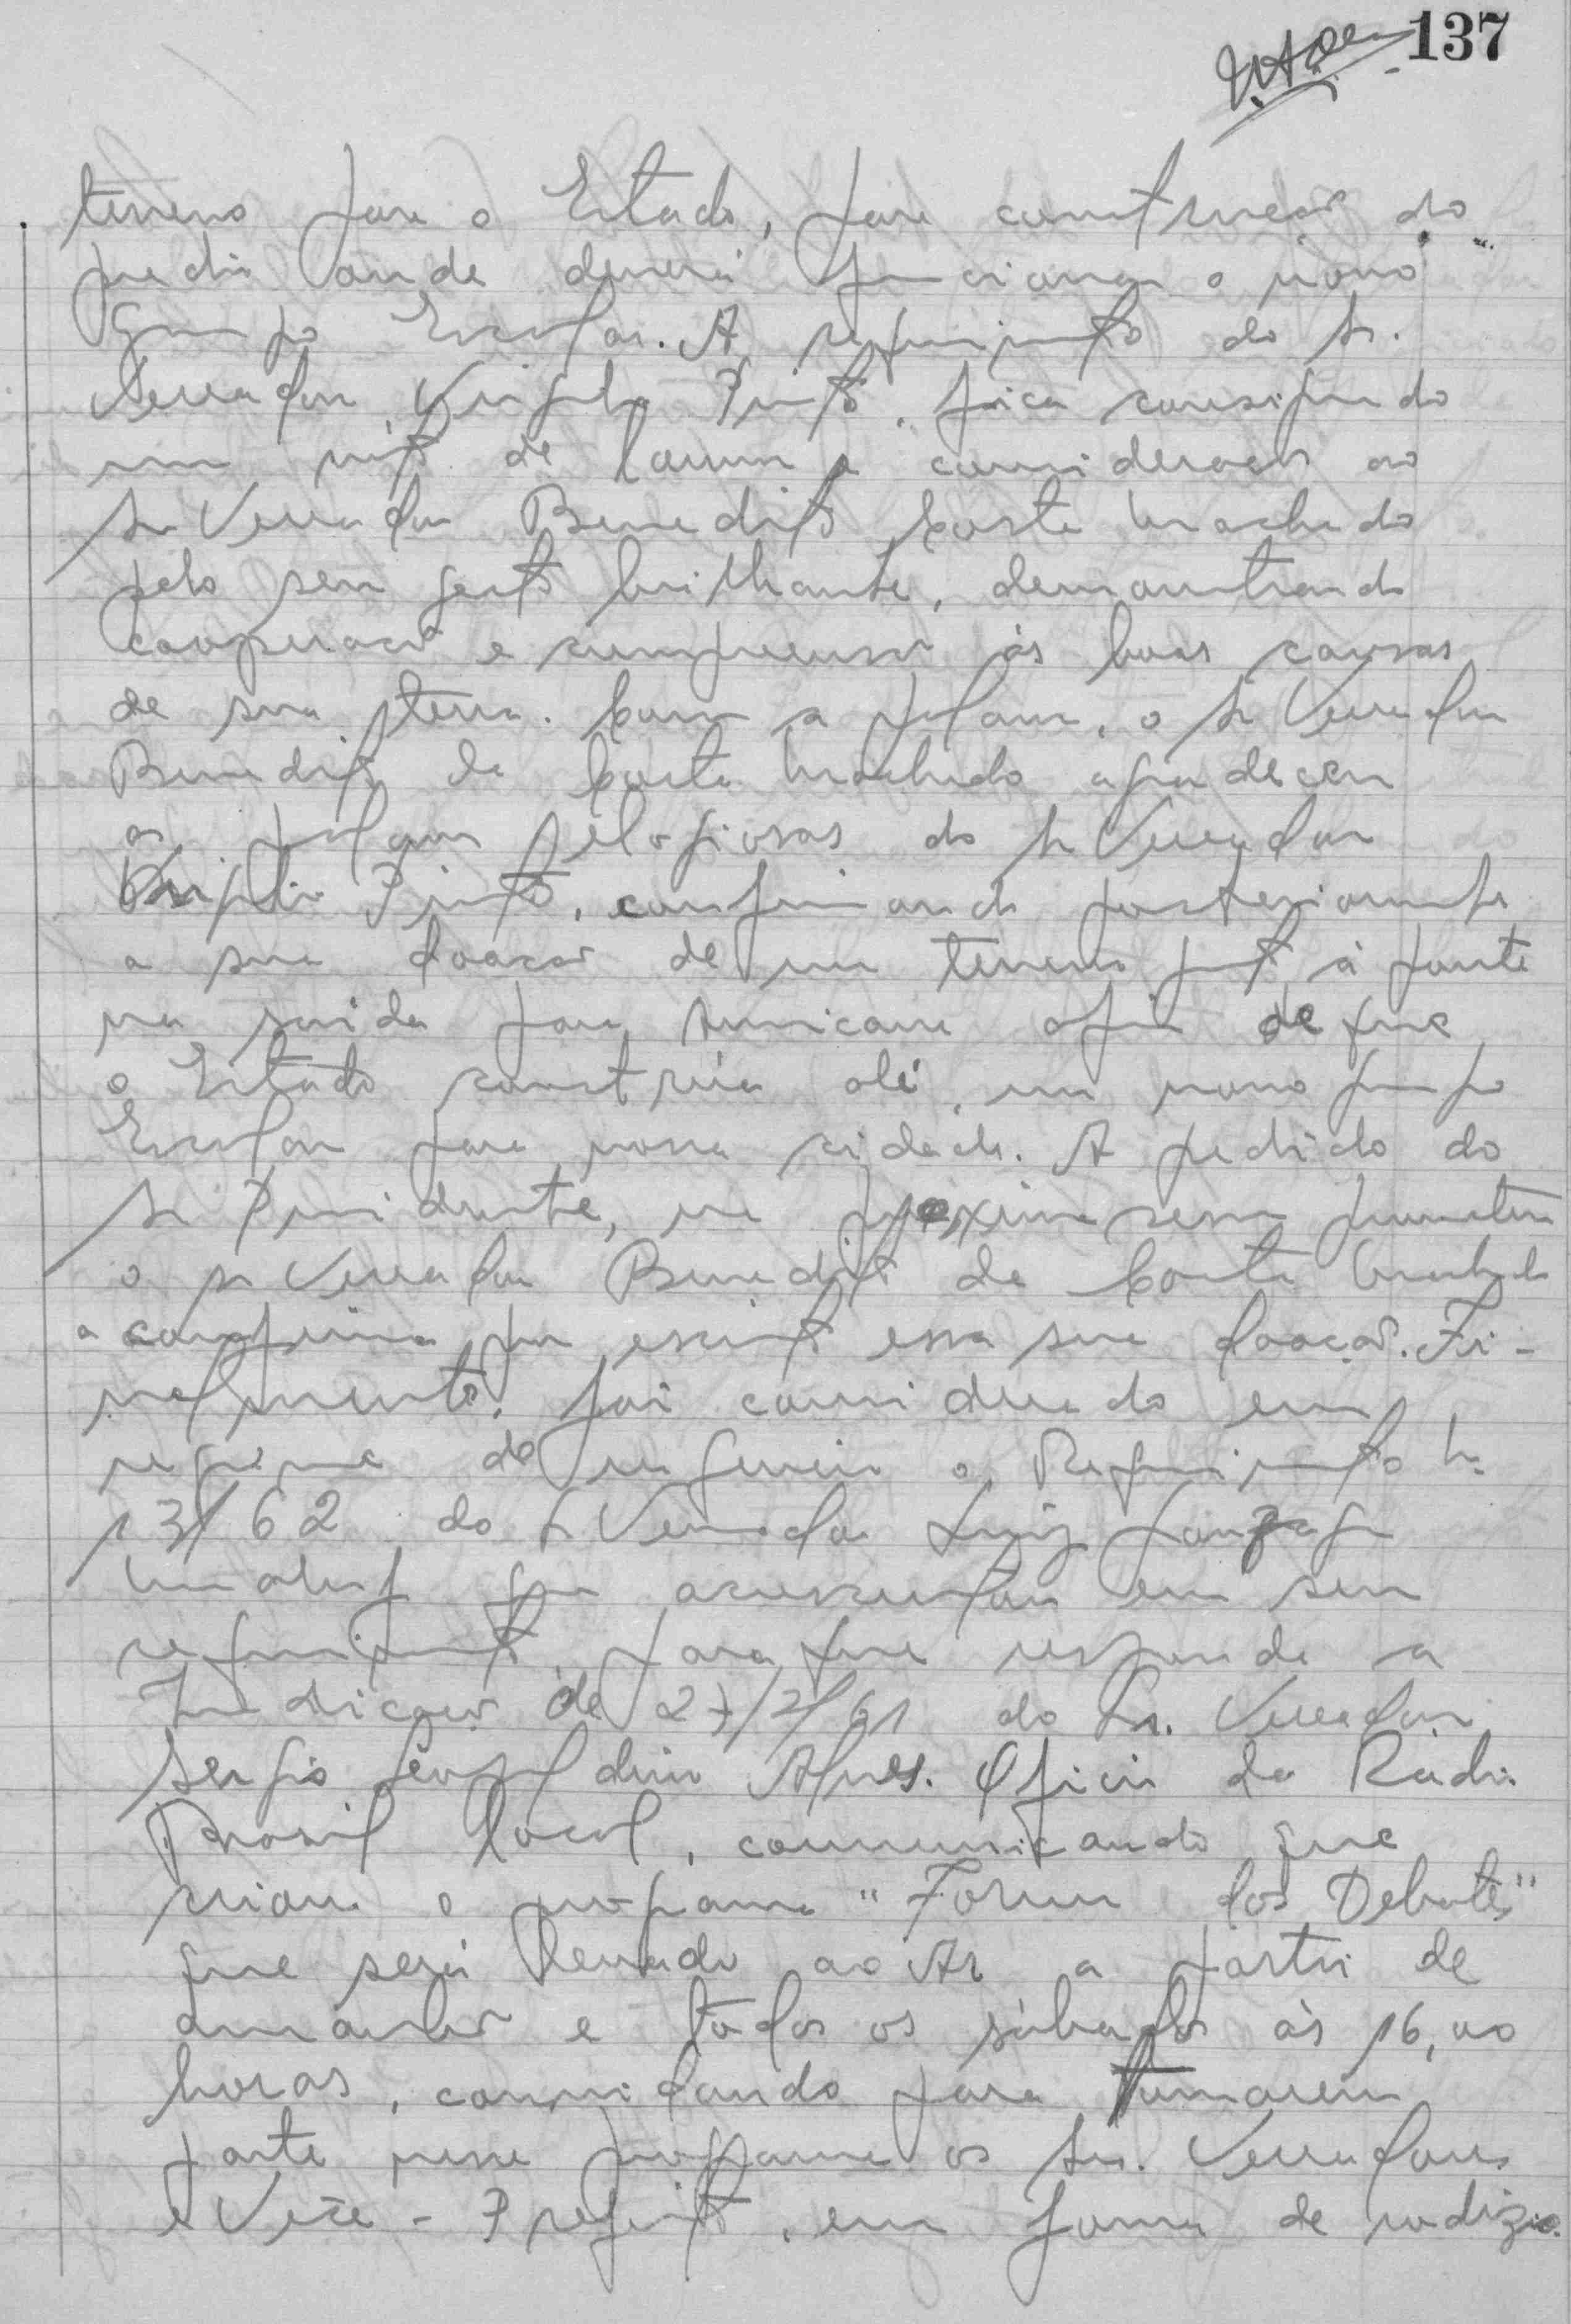 137
terreno para o Estado, para construção do
predio onde deverá funcionar o novo
Grupo Escolar. A requerimento do Sr.
Vereador Virgilio Pinto, fica consignado
um voto de louvor e consideração ao
Sr Vereador Benedito Costa Machado
pelo seu gesto brilhante, demonstrando
cooperação e compreensão às boas causas
de sua terra. Com a palavra, o Sr Vereador
Benedito da Costa Machado agradeceu
as palavras elogiosas do Sr Vereador
Virgilio Pinto, confirmando posteriormente
a sua doação de um terreno junto à ponte
na saida para Americana afim de que
o Estado construa alí, um novo grupo
Escolar para nossa cidade. A pedido do
Sr Presidente, na proxima sessão prometeu
o Sr Vereador Benedito da Costa Machado
a confirmar por escrito essa sua doação. Fi-
nalmente, foi considerado em
regime de urgencia o Requerimento
13/62 do Sr Vereador Luiz Gonzaga
que acrescentou em seu
requerimento, para que responda a
Indicação de 27/2/61 do Sr. Vereador
Sergio Leopoldino Alves. Oficio da Radio
Brasil local, comunicando que
criara o programa "Forum dos Debates"
que será levado ao Ar a partir de
amanhã e todos os sábados às 16,00
horas, convidando para tomarem
parte nesse programa os Srs. Vereadores
e Vice-Prefeito, em forma de rodizio.